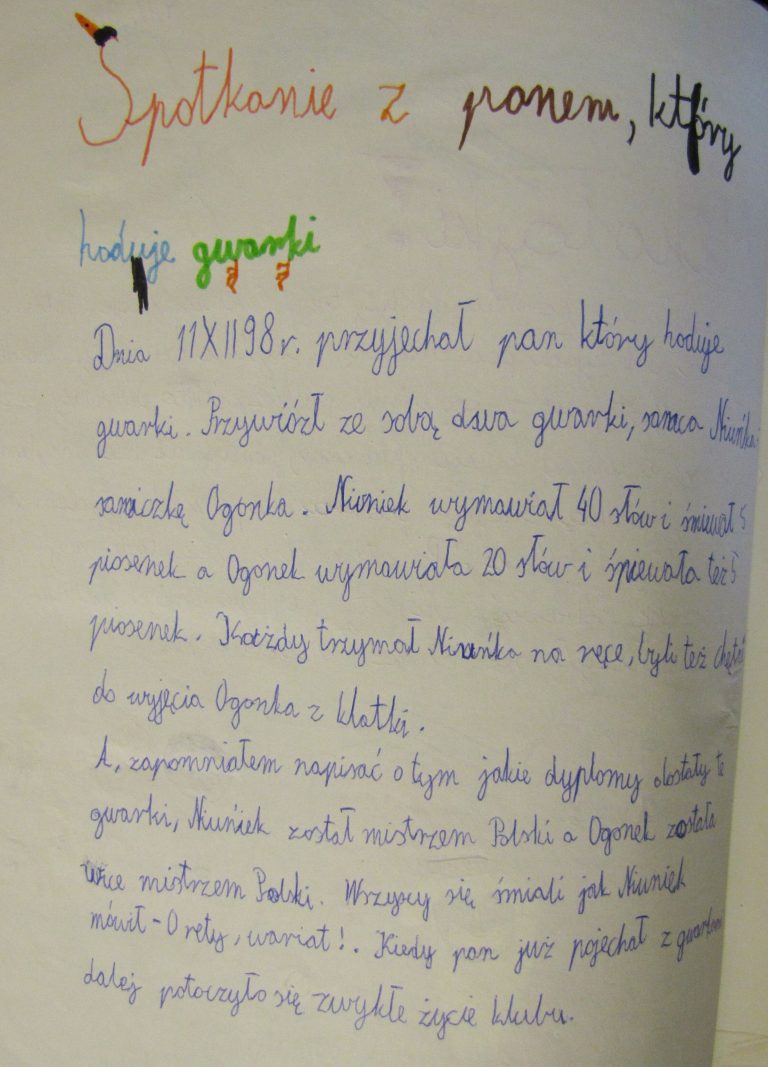 Spotkanie z panem, który
hoduje gwarki
Dnia 11XII98r. przyjechał pan który hoduje
gwarki. Przywiózł ze sobą dwa gwarki, samca Niuńka
samiczkę Ogonka. Niuniek wymawiał 40 słów i śpiewał 5
piosenek a Ogonek wymawiała 20 słów i śpiewała też 5
piosenek. Każdy trzymał Niuńka na ręce, byli też chętni
do wyjęcia Ogonka z klatki.
A, zapomniałem napisać o tym jakie dyplomy dostały te
gwarki, Niuniek został mistrzem Polski a Ogonek została
wice mistrzem Polski. Wszyscy się śmiali jak Niuniek
mówił - O rety, wariat!. Kiedy pan już pojechał z gwarkami
dalej potoczyło się zwykłe życie klubu.